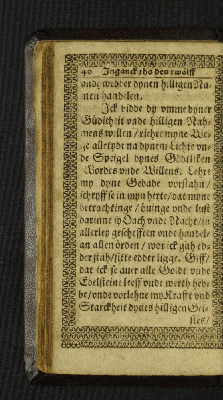 40 Inganck tho den twölff
vnde wedder dynen hilligen Na-
men handelen.
Jck bidde dy vmme dyner
Güdicheit vnde hilligen Nah-
mens willen / richte myne We-
ge alletydt na dynem Lichte vn-
de Speigel dynes Gödtliken
Wordes vnde Willens. Lehre
my dyne Gebade vorstahn /
schryff se in myn herte / dat myne
betrachtinge / daringe vnde lust
darinne sy Dach vnde Nacht / in
allerley geschefften vnde handel-
an allen örden / wor ick gah ed-
der stah / sitte edder ligge. Giff /
dat ick se auer alle Goldt vnde
Eddelsteine leeff vnde werth heb-
be / vnde vorlehne my Krafft vnd
Starckheit dynes hilligen Gei-
stes /